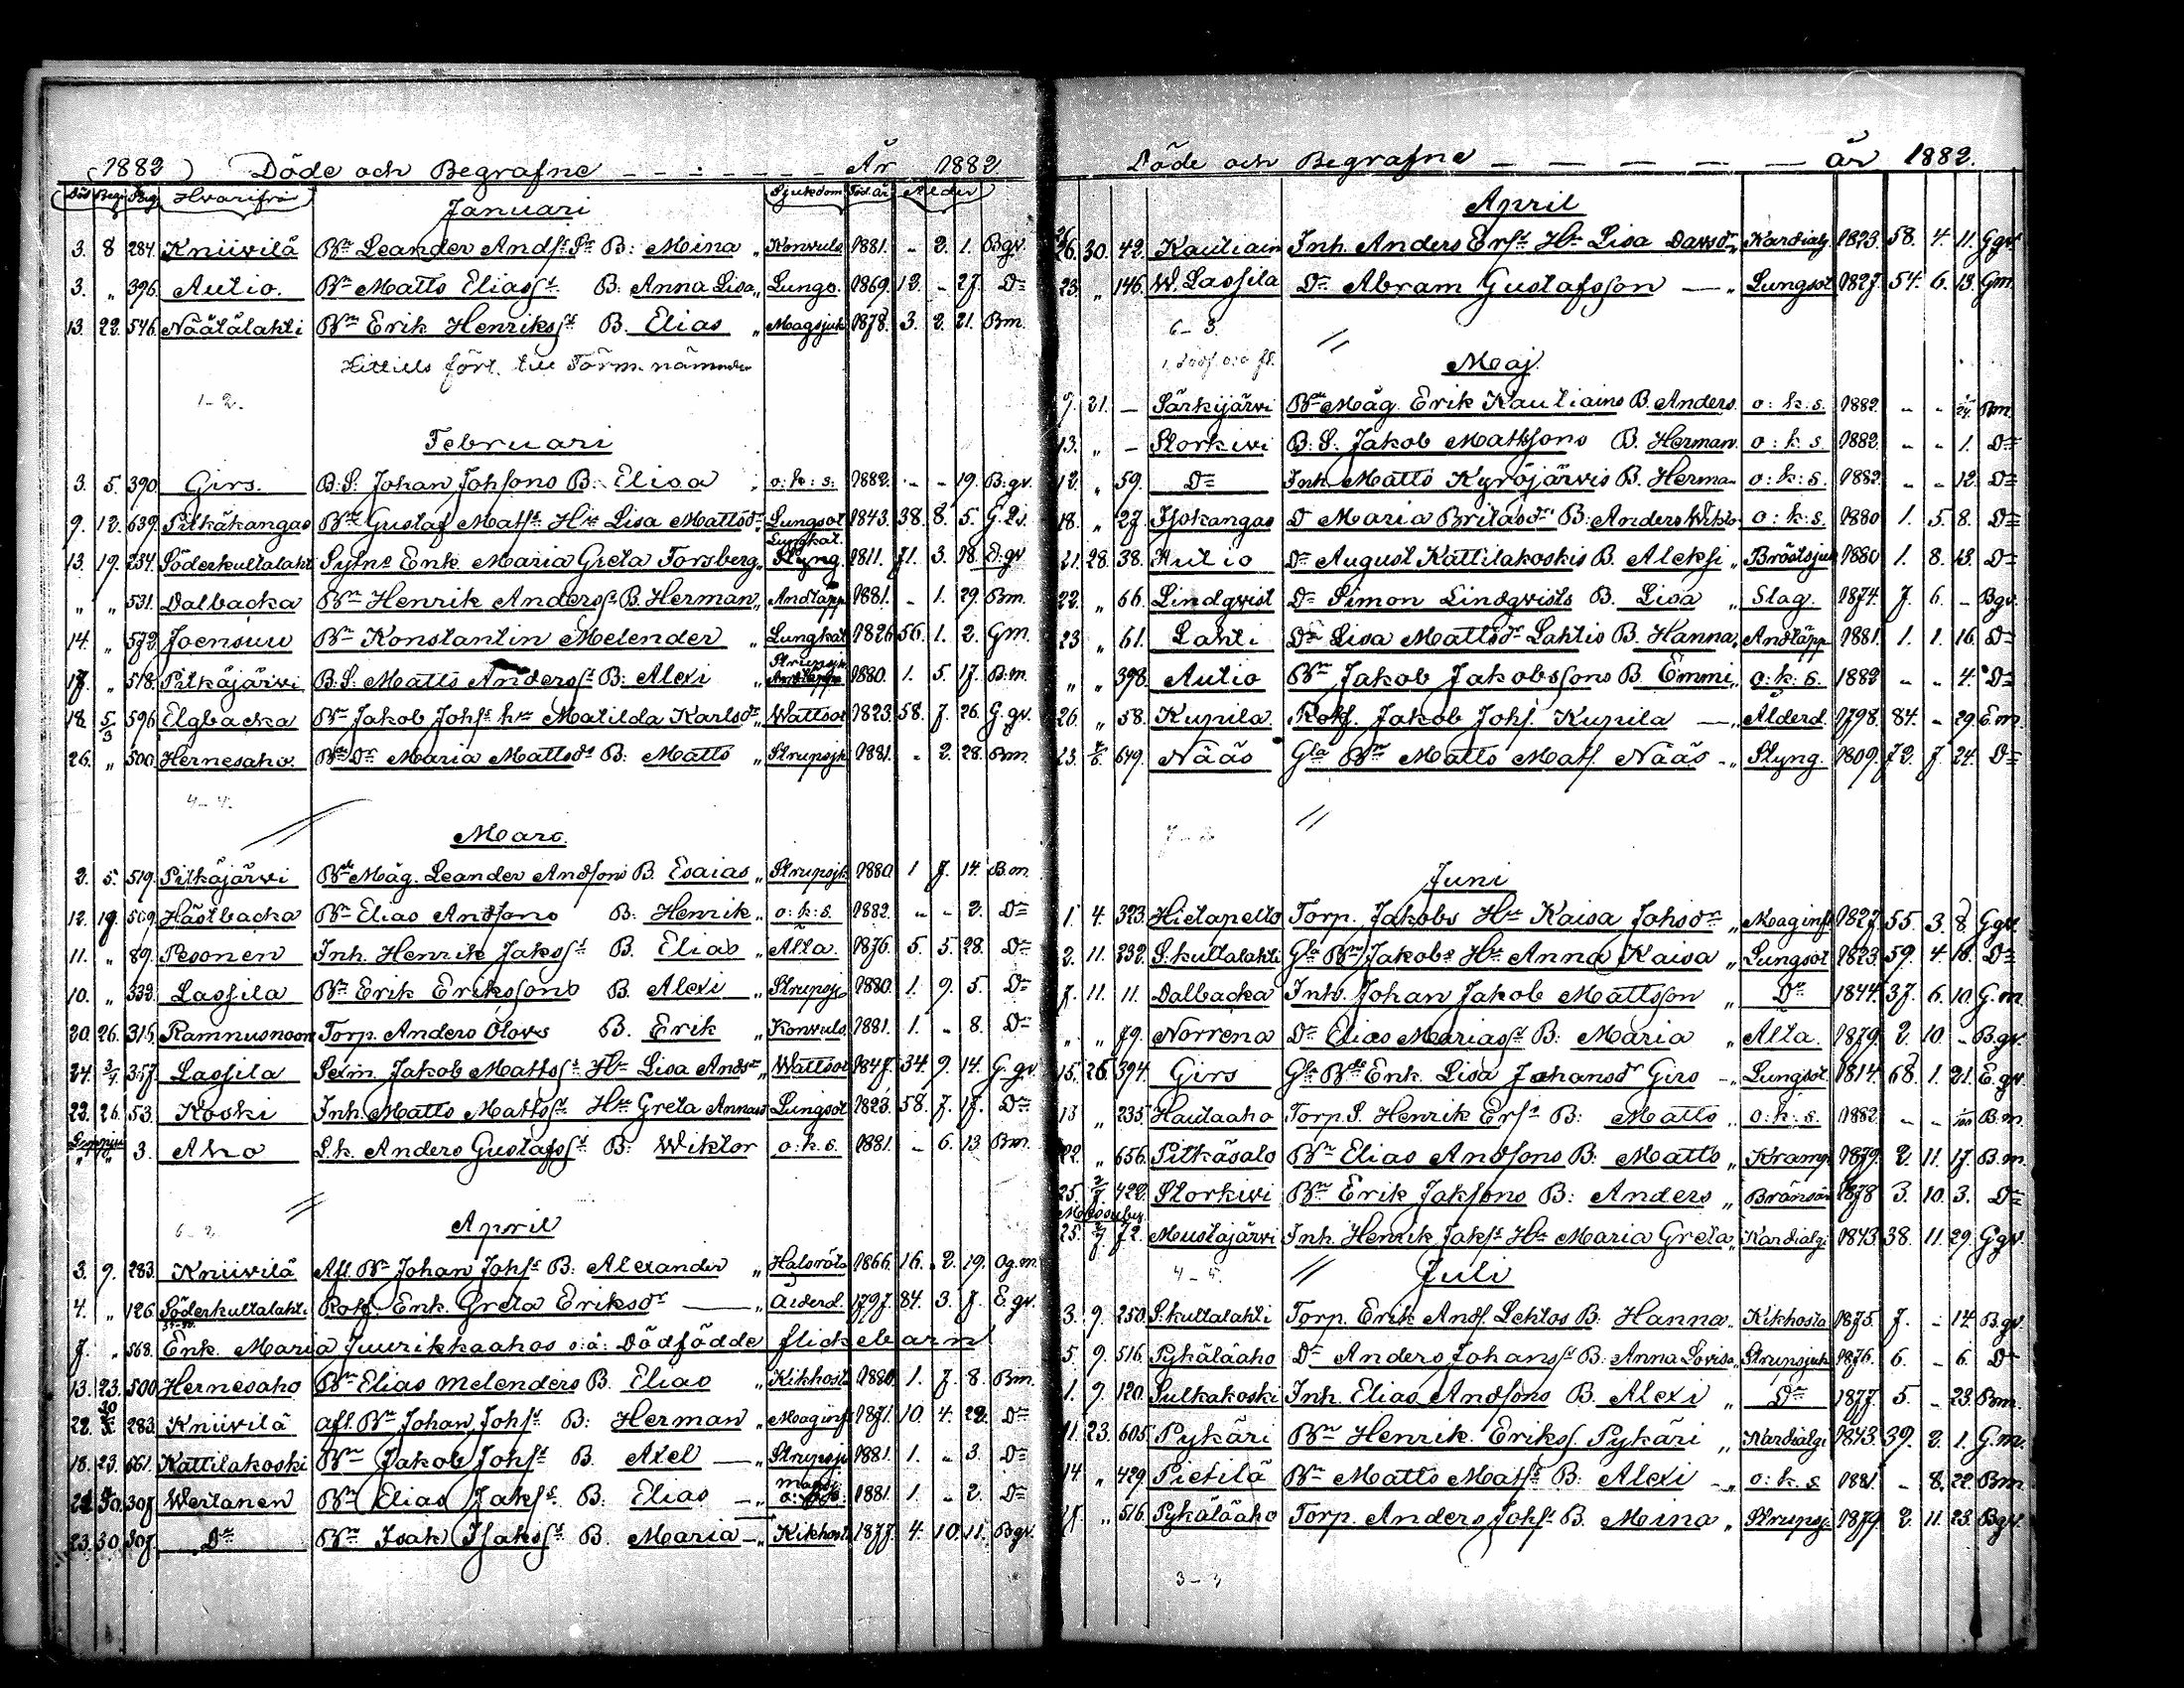 1882 Döde och Begrafne År 1882
Död Begr. Pag. Hvarifrå Sjukdom Född år Ålder
Januari
3. 8 284. Kniivilä Bn Leander Andss Sn B: Mina „ Konvuls 1881. - 2. 1. Bgv.
3. „ 396. Autio. Bn Matts Eliass. B: Anna Lisa „ Lungs. 1869. 12. - 27. Do
13. 22. 546. Näätälahti Bn Erik Henrikss B. Elias „ Magsjuk 1878. 3. 2. 21. Bm.
Hittills fört. till Förm. nämnden
1-2.
Februari
3. 5. 390. Girs. B.S. Johan Johsons B: Elisa o: k: s: 1882. - - 19. B.gv.
9. 12. 639. Pitkäkangas Bn Gustaf Matss Hu Lisa Mattsdr Lungsot 1843. 38. 8. 5. G.
13. 19. 234. Söderkultalaht Sytns Enk. Maria Greta Forsberg „ Lungkat. Styng. 1811. 71. 3. 18.
„ „ 531. Dalbacka Bn Henrik Anderss B. Herman „ Andtäpp 1881. - 1. 29. Bm.
14. „ 572. Joensuu Bn Konstantin Melender „ Lungkat 1826 56. 1. 2. Gm.
17. „ 518. Pitkäjärvi B.S. Matts Anderss B: Alexi „ Strupsjk Andtäppa 1880. 1. 5. 17. B.m.
18. 5/3 596. Elgbacka Bn Jakob Johss hu Matilda Karlsdr „ Wattsot 1823. 58. 7. 26. G.gv.
26. „ 500. Hernesaho Bn Dr Maria Mattsdr B: Matts „ Strupsjk 1881. - 2. 28. Bm.
4-4.
Mars.
2. 5. 519. Pitkäjärvi Bn Måg. Leander Andsons B. Esaias „ Strupsjk 1880. 1 7. 14. B.m.
12. 19. 509. Hästbacka Bn Elias Andsons B: Henrik „ o: k: s. 1882. - - 2. Do
11. „ 89. Pesonen Inh. Henrik Jakss B. Elias „ Ålta. 1876. 5. 5 28. Do
10. „ 332. Lassila Bn Erik Erikssons B. Alexi „ Strupsj. 1880. 1. 9. 5. Do
20. 26. 315. Ramnusnoom Torp. Anders Olovs B. Erik „ Konvuls. 1881. 1. - 8. Do
24. 3/4 357. Lassila Jakob Mattss Hu Lisa Andsdr „ Wattsot 1847. 34. 9. 14. G.gv.
23. 26. 53. Koski Inh. Matts Mattss Hu Greta Annasd Lungsot 1823. 58. 7. 17. Do
3. Aho S.k. Anders Gustafss B: Wiktor o: k. s. 1881. - 6. 13 Bm.
6-2
April
3. 9. 283. Kniivilä Afl. Bn Johan Johss B: Alexander „ Halsröta 1866. 16. 2. 19. Og.m.
4. „ 126. Söderkultalahti Rotf. Enk. Greta Eriksdr „ Ålderd. 1797. 84. 3. 7. E.gv.
7. „ 568. Enk. Maria Juurikkaahos o: ä: Dödfödde flickebarn
13. 23. 500 Hernesaho Bn Elias Melenders B. Elias „ Kikhosta 1880. 1. 7. 8. Bm.
22. 30 283. Kniivilä afl. Bn Johan Johss B: Herman „ Maginf 1871. 10. 4. 22. Do
18. 23. 661. Kattilakoski Bn Jakob Johss B. Axel „ Strupsj. 1881. 1. - 3. Do
30. 307 Wertanen Bn Elias Jakss B: Elias „ 1881. 1. - 2. Do
23. 30. 307. Do Bn Isak Isakss B. Maria „ Kikhosta 1877. 4. 10. 11. Bgv.
Döde och Begrafne år 1882.
April
26. 30. 42. Kautiain Inh. Anders Erss Hu Lisa Davsdr „ Kardialg. 1823. 58. 4. 11. Ggv.
23. „ 146. W. Lassila Do Abram Gustafsson „ Lungsot 1827. 54. 6. 13. Gm.
6-3.
Maj.
9. 21. - Särkijärvi Bn Måg. Erik Kautiains B. Anders. o: k. s. 1882. - - Bm.
13. „ - Storkivi B.S. Jakob Mattsons B. Herman. o: k s. 1882. - - 1. Do
12. „ 59. Do Inh. Matts Kyröjärvis B. Herman o: k: s. 1882. - - 12. Do
18. „ 27. Isokangas Do Maria Britasdr B: Anders Wikto o: k: s. 1880 1. 5. 8. Do
21. 28. 38. Autio Do August Kattilakoskis B. Aleksi „ Bröstsjuk 1880 1. 8. 13. Do
22. „ 66. Lindqvist Do Simon Lindqvists B. Lisa „ Slag. 1874. 7. 6. - Bgv.
23 „ 61. Lahti Do Lisa Mattsdr Lahtis B. Hanna „ Andtäpp 1881. 1. 1. 16. Do
„ „ 398. Autio Bn Jakob Jakobssons B. Emmi „ o: k: s. 1882 - - 4. Do
26. „ 58. Kupila Rotf. Jakob Johs. Kupila „ Ålderd. 1798. 84. - 29. E.m.
23. 649. Nääs Gla Bn Matts Mats. Nääs „ Styng. 1809. 72. 7. 24. Do
Juni
1. 4. 323. Hietapelto Torp. Jakobs Hu Kaisa Johsdr „ Maginf 1827. 55. 3. 8. Ggv.
2. 11. 232. S.kultalahti Gla Bn Jakobs Hu Anna Kaisa „ Lungsot 1823. 59. 4. 18. Do
7. 11. 11. Dalbacka Inh. Johan Jakob Mattsson „ Do 1844. 37. 6. 10. G.m.
„ „ 79. Norrena Do Elias Mariass B: Maria „ Ålta. 1879. 2. 10. - B.gv.
15. 25. 394. Girs Gla Bn Enk. Lisa Johansdr Girs „ Lungsot. 1814. 68. 1. 21. E.gv
13 „ 235. Hautaaho Torp.S. Henrik Erss B: Matts „ o: k: s. 1882. - - B.m.
22. „ 656. Pitkäsalo Bn Elias Andsons B: Matts „ Kramp. 1879. 2. 11. 17. B.m.
25. 2/7 422. Storkivi Bn Erik Jaksons B: Anders „ Brånsår 1878 3. 10. 3. Do
25. 2/7 72. Mustajärvi Inh. Henrik Jakss Hu Maria Greta „ Kardialgi 1843 38. 11. 29. Ggv.
4-5.
Juli
3. 9. 250. S.kultalahti Torp. Erik Ands. Lehtos B: Hanna „ Kikhosta 1875. 7. - 14. B.gv.
5. 9. 516. Pykäläaho Do Anders Johanss B: Anna Lovisa „ Strupsjuk 1876. 6. - 6. Do
1. 9. 120. Sulkakoski Inh. Elias Andsons B. Alexi „ Do 1877. 5. - 23. Bm.
11. 23. 605. Pykäri Bn Henrik Erikss. Pykäri „ Kardialgi 1843. 39. 2. 1. G.m.
14 „ 429. Pietilä Bn Matts Matss B: Alexi „ o: k. s 1881. - 8. 22. Bm.
17. „ 516. Pykäläaho Torp. Anders Johss B. Mina „ Strupsj. 1879. 2. 11. 23. Bgv.